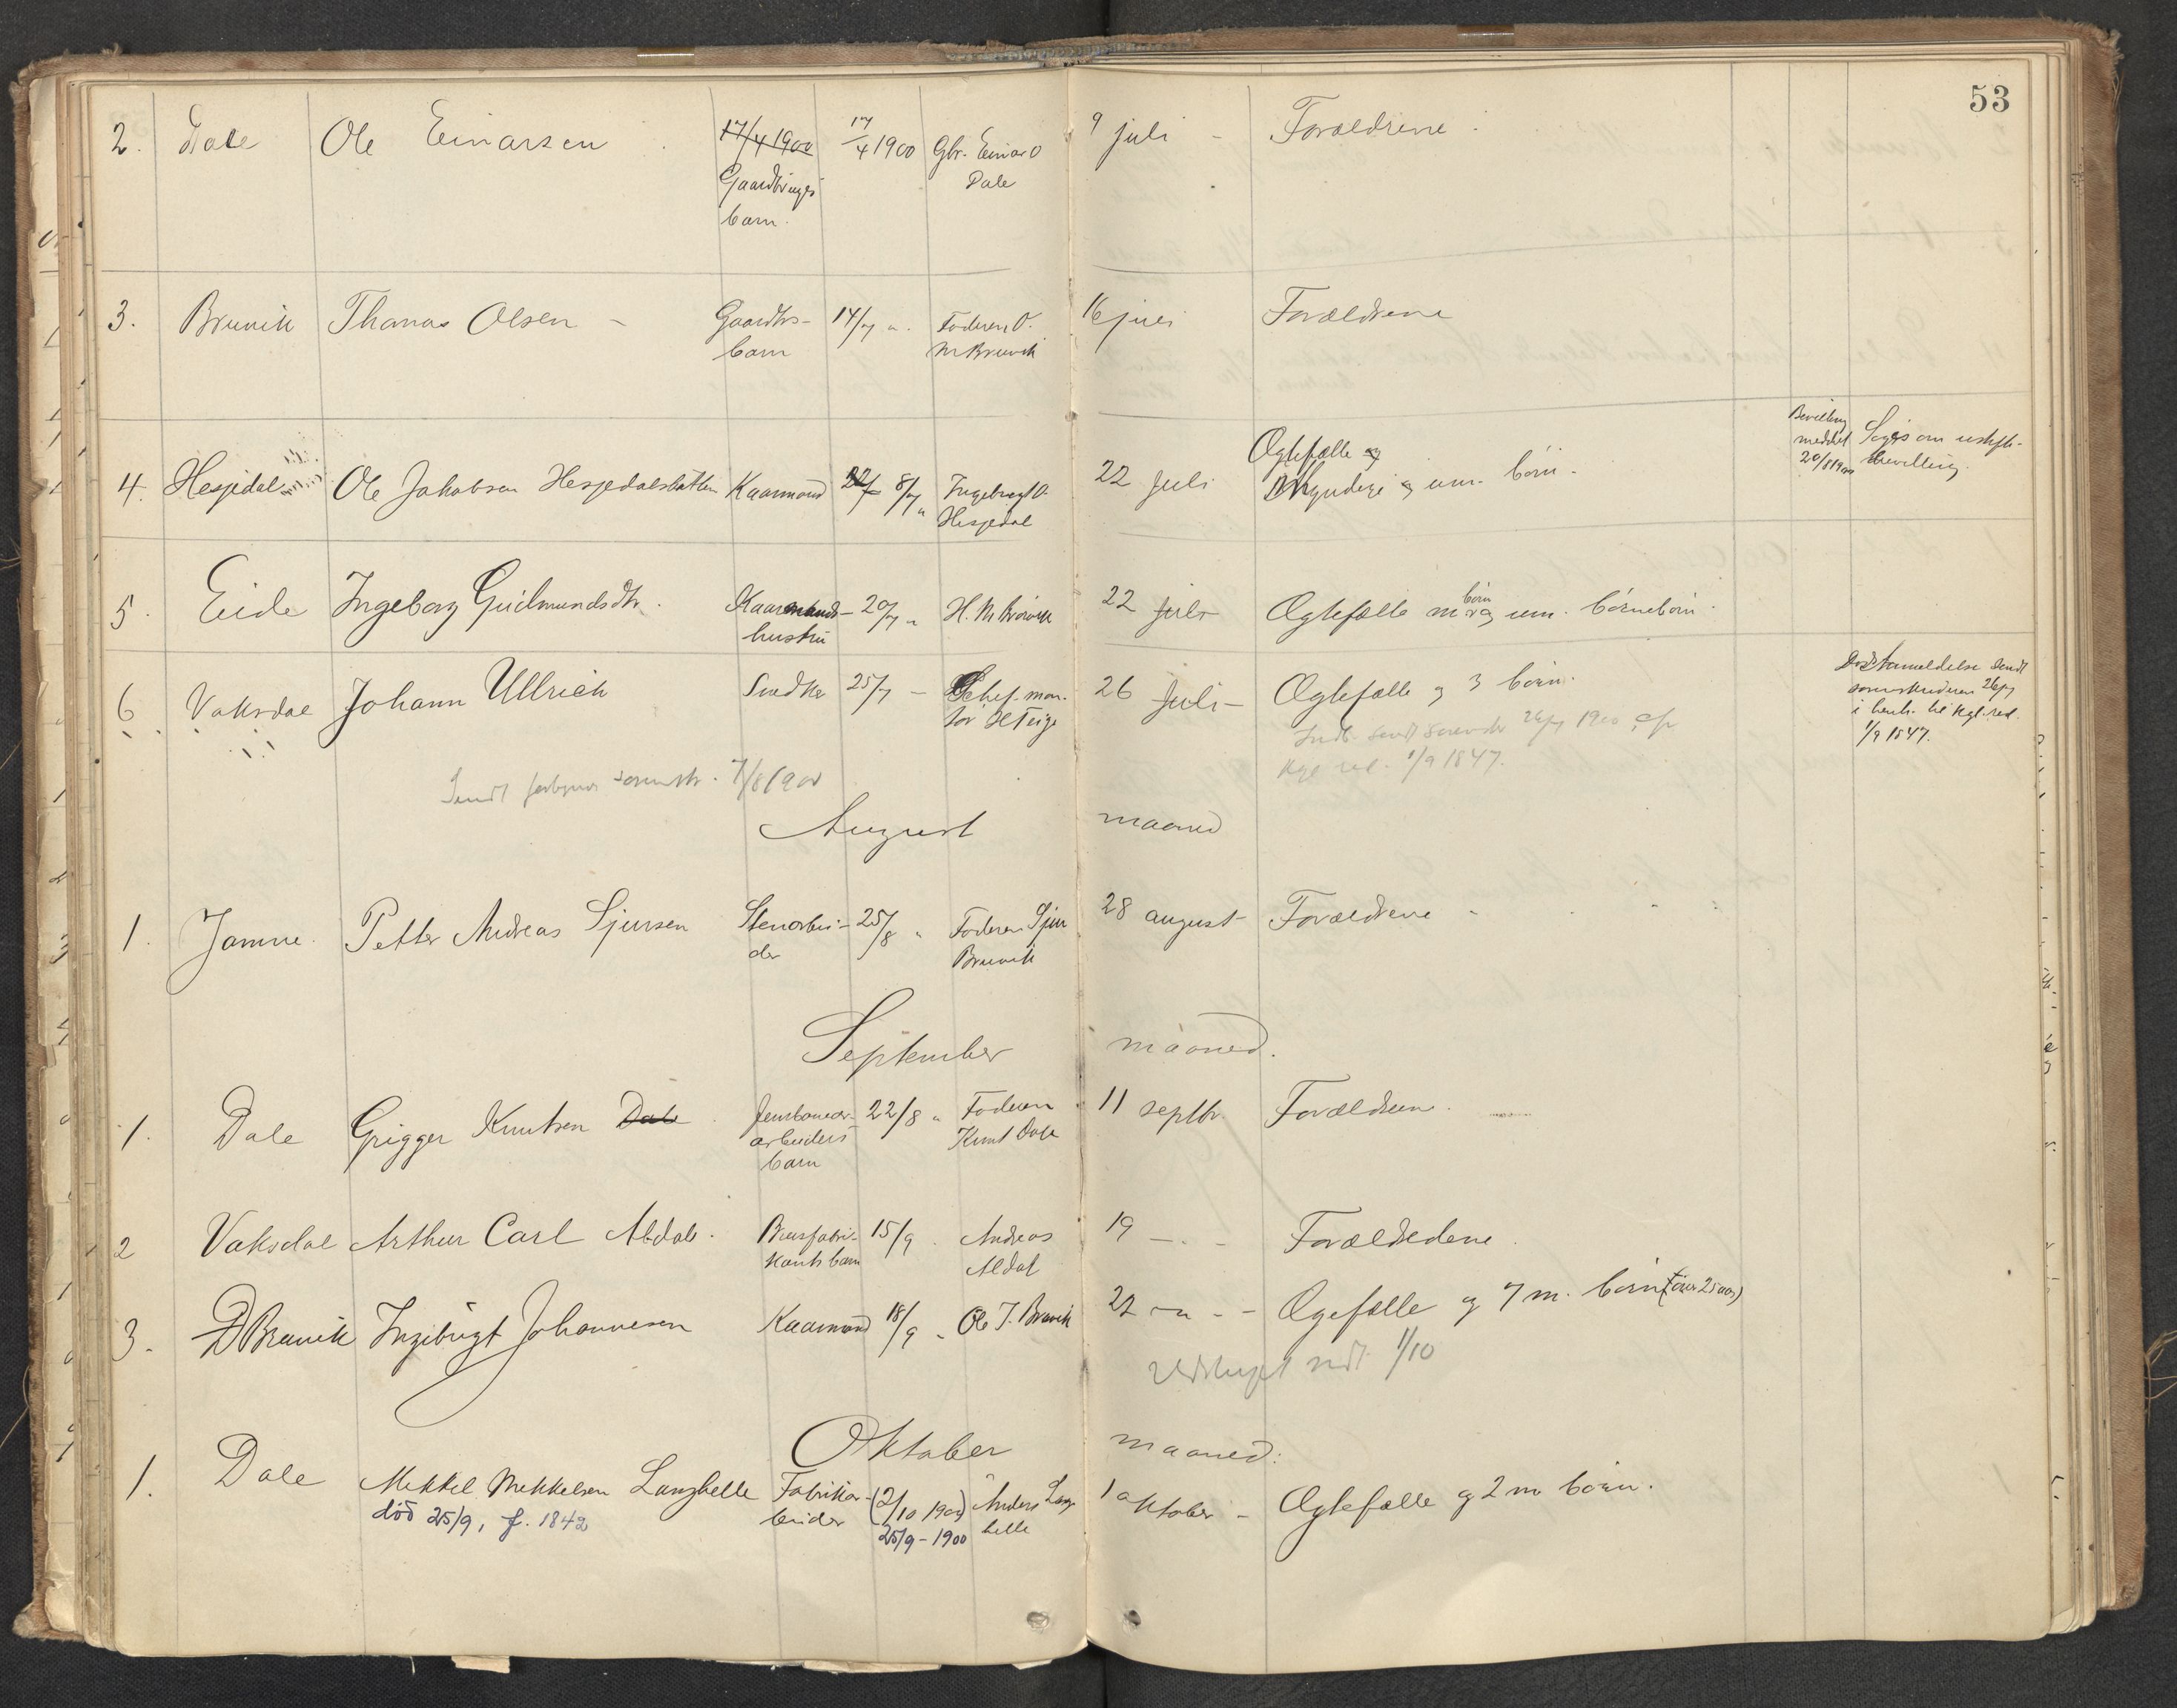 53
2. Dale Ole Einarsen 17/4 1900 17/4 1900 Gbr. Einar O 9 juli - Forældrene
Gaardbrugs Dale
barn.
3. Bruvik Thomas Olsen - Gaardbrs- 14/7 " Faderen O. 16 juli Forældrene
barn M Bruvik
Bevilling
meddelt Søges om uskift-
20/8 1900 bevilling.
Ægtefælle og
4. Hesjedal Ole Jakobsen Hesjedalsløtten Kaarmand 8/7 " Ingebrigt O. 22 Juli Myndige og um. børn.
Hesjedal
børn
5. Eide Ingeborg Gudmundsdtr. Kaarmands- 20/7 " H. M. Bruvik 22 juli Ægtefælle m og um. børnebørn.
hustru
6 Vaksdal Johann Ullrich Snedker 25/7 - 26 Juli - Ægtefælle og 3 børn.
H Teige
Dødsanmeldelse sendt
sorenskriveren 26/7
i henh. til kgl. res.
1/9 1847.
Indb. sendt sorenskr 26/7 1900
kgl res. 1/9 1847.
Sendt sorenskr. 7/8 1900
August maaned
1. Jamne. Petter Andreas Sjursen Stenarbei- 25/8 " Faderen Sjur 28 august - Forældrene -
der Bruvik
September maaned.
1. Dale Grigger Knutsen Dale Jernbanear- 22/8 " Faderen 11 septbr. Forældrene.
arbeiders Knut Dale
barn
2 Vaksdal Arthur Carl Aldal. Brusfabri- 15/9 . Andreas 19 - . - Forældredene.
kants barn Aldal
3. Bruvik Ingebrigt Johannesen Kaarmand 18/9 " Ole J. Bruvik 22 - " - - Ægefælle og 7 m. børn (over 25 aar)
1/10
Oktober maaned:
1. Dale Mikkel Mikkelsen Langhelle Fabrikar- (2/10 1900) Anders Lang 1 oktober - Ægtefælle og 2 m børn.
død 25/9, f. 1842 beider 25/9 - 1900 helle